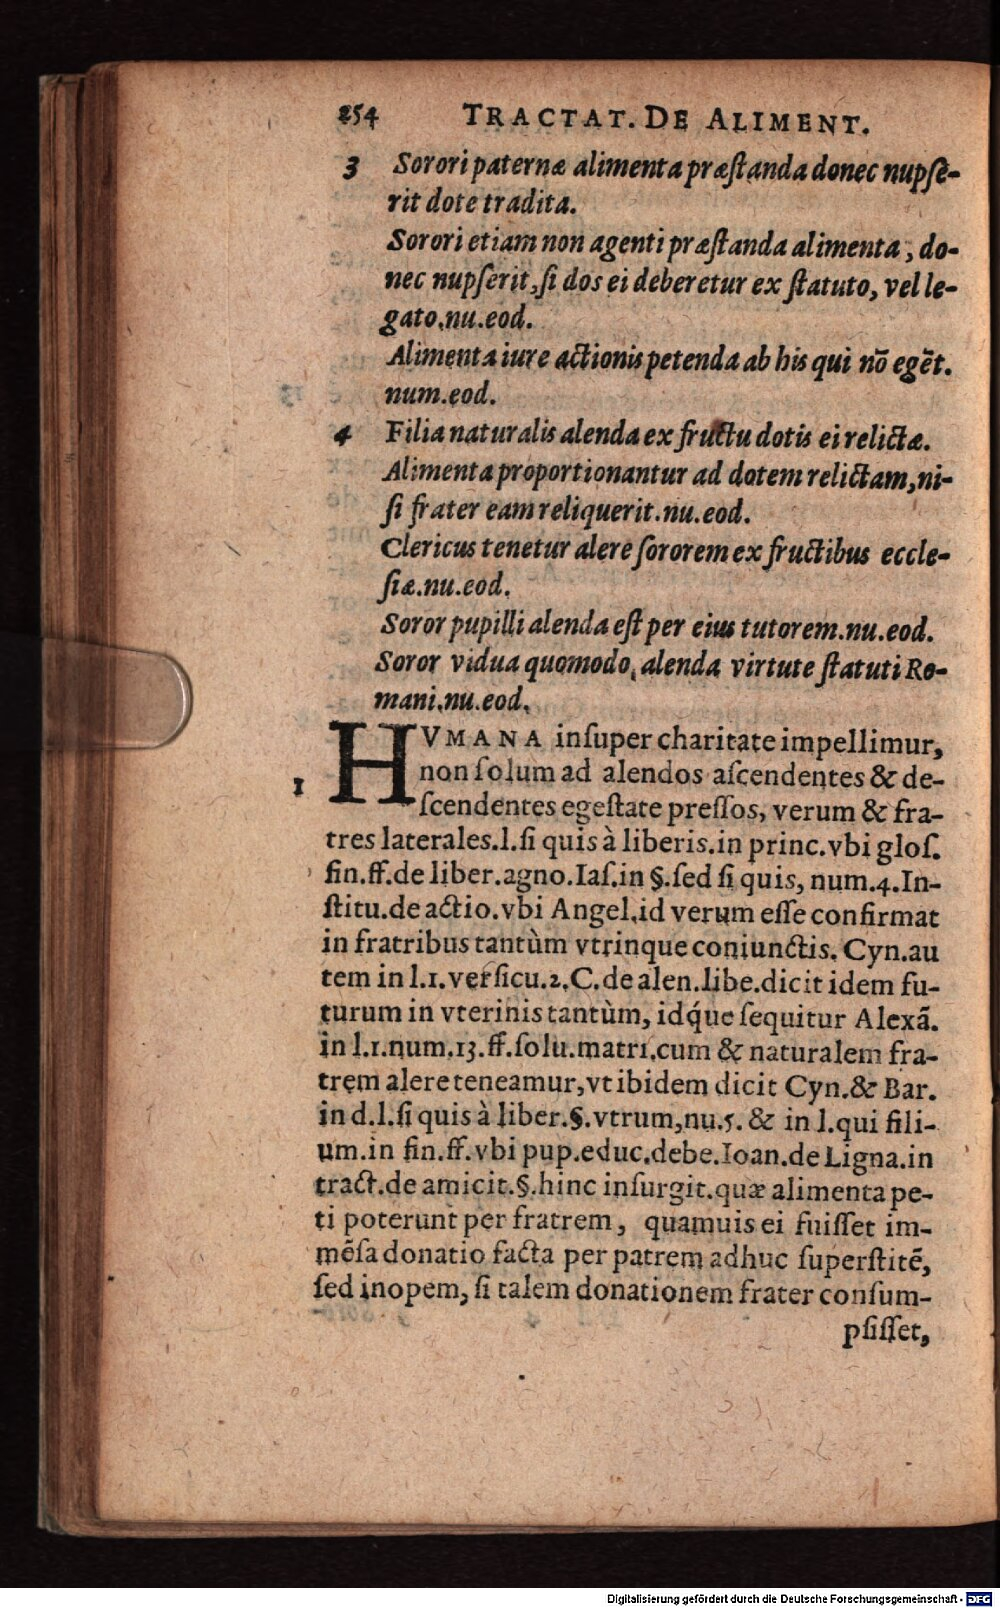 254 TRACTAT. DE ALIMENT.
3 Sorori paternæ alimenta præſtanda donec nupſe-
rit dote tradita.
Sorori etiam non agenti præſtanda alimenta, do-
nec nupſerit, ſi dos ei deberetur ex ſtatuto, vel le-
gato.nu.eod.
Alimenta iure actionis petenda ab his qui nō egēt.
num.eod.
4 Filia naturalis alenda ex fructu dotis ei relictæ.
Alimenta proportionantur ad dotem relictam, ni-
ſi frater eam reliquerit.nu.eod.
Clericus tenetur alere ſororem ex fructibus eccle-
ſiæ.nu.eod.
Soror pupilli alenda eſt per eius tutorem.nu.eod.
Soror vidua quomodo, alenda virtute ſtatuti Ro-
mani.nu.eod.
HVMANA inſuper charitate impellimur,
1 non ſolum ad alendos aſcendentes & de-
ſcendentes egeſtate preſſos, verum & fra-
tres laterales.l.ſi quis à liberis.in princ.vbi gloſ.
fin.ff.de liber.agno.Iaſ.in §.ſed ſi quis, num.4.In-
ſtitu.de actio.vbi Angel.id verum eſſe confirmat
in fratribus tantùm vtrinque coniunctis. Cyn.au
tem in l.1.verſicu.2.C.de alen.libe.dicit idem fu-
turum in vterinis tantùm, idq́ue ſequitur Alexã.
in l.1.num.13.ff.ſolu.matri.cum & naturalem fra-
trem alere teneamur, vt ibidem dicit Cyn.& Bar.
in d.l.ſi quis à liber.§.vtrum, nu.5. & in l.qui fili-
um.in fin.ff.vbi pup.educ.debe.Ioan.de Ligna.in
tract.de amicit.§.hinc inſurgit.quæ alimenta pe-
ti poterunt per fratrem, quamuis ei fuiſſet im-
mēſa donatio facta per patrem adhuc ſuperſtitē,
ſed inopem, ſi talem donationem frater conſum-
pſiſſet,
Digitalisierung gefördert durch die Deutsche Forschungsgemeinschaft - DFG